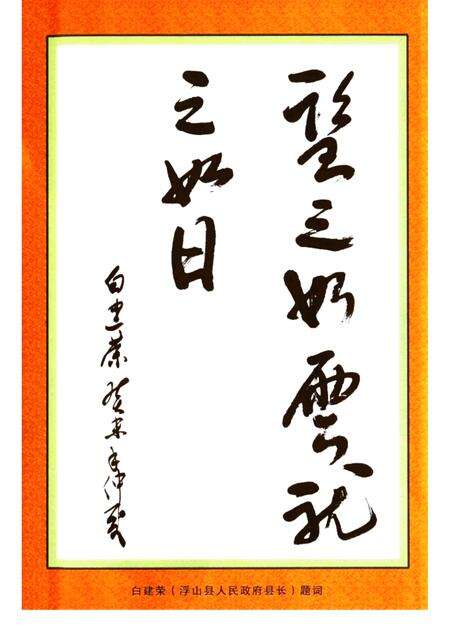 望之如雲就
之如日
白建荣癸未年仲夏
白建荣（浮山县人民政府县长）题词